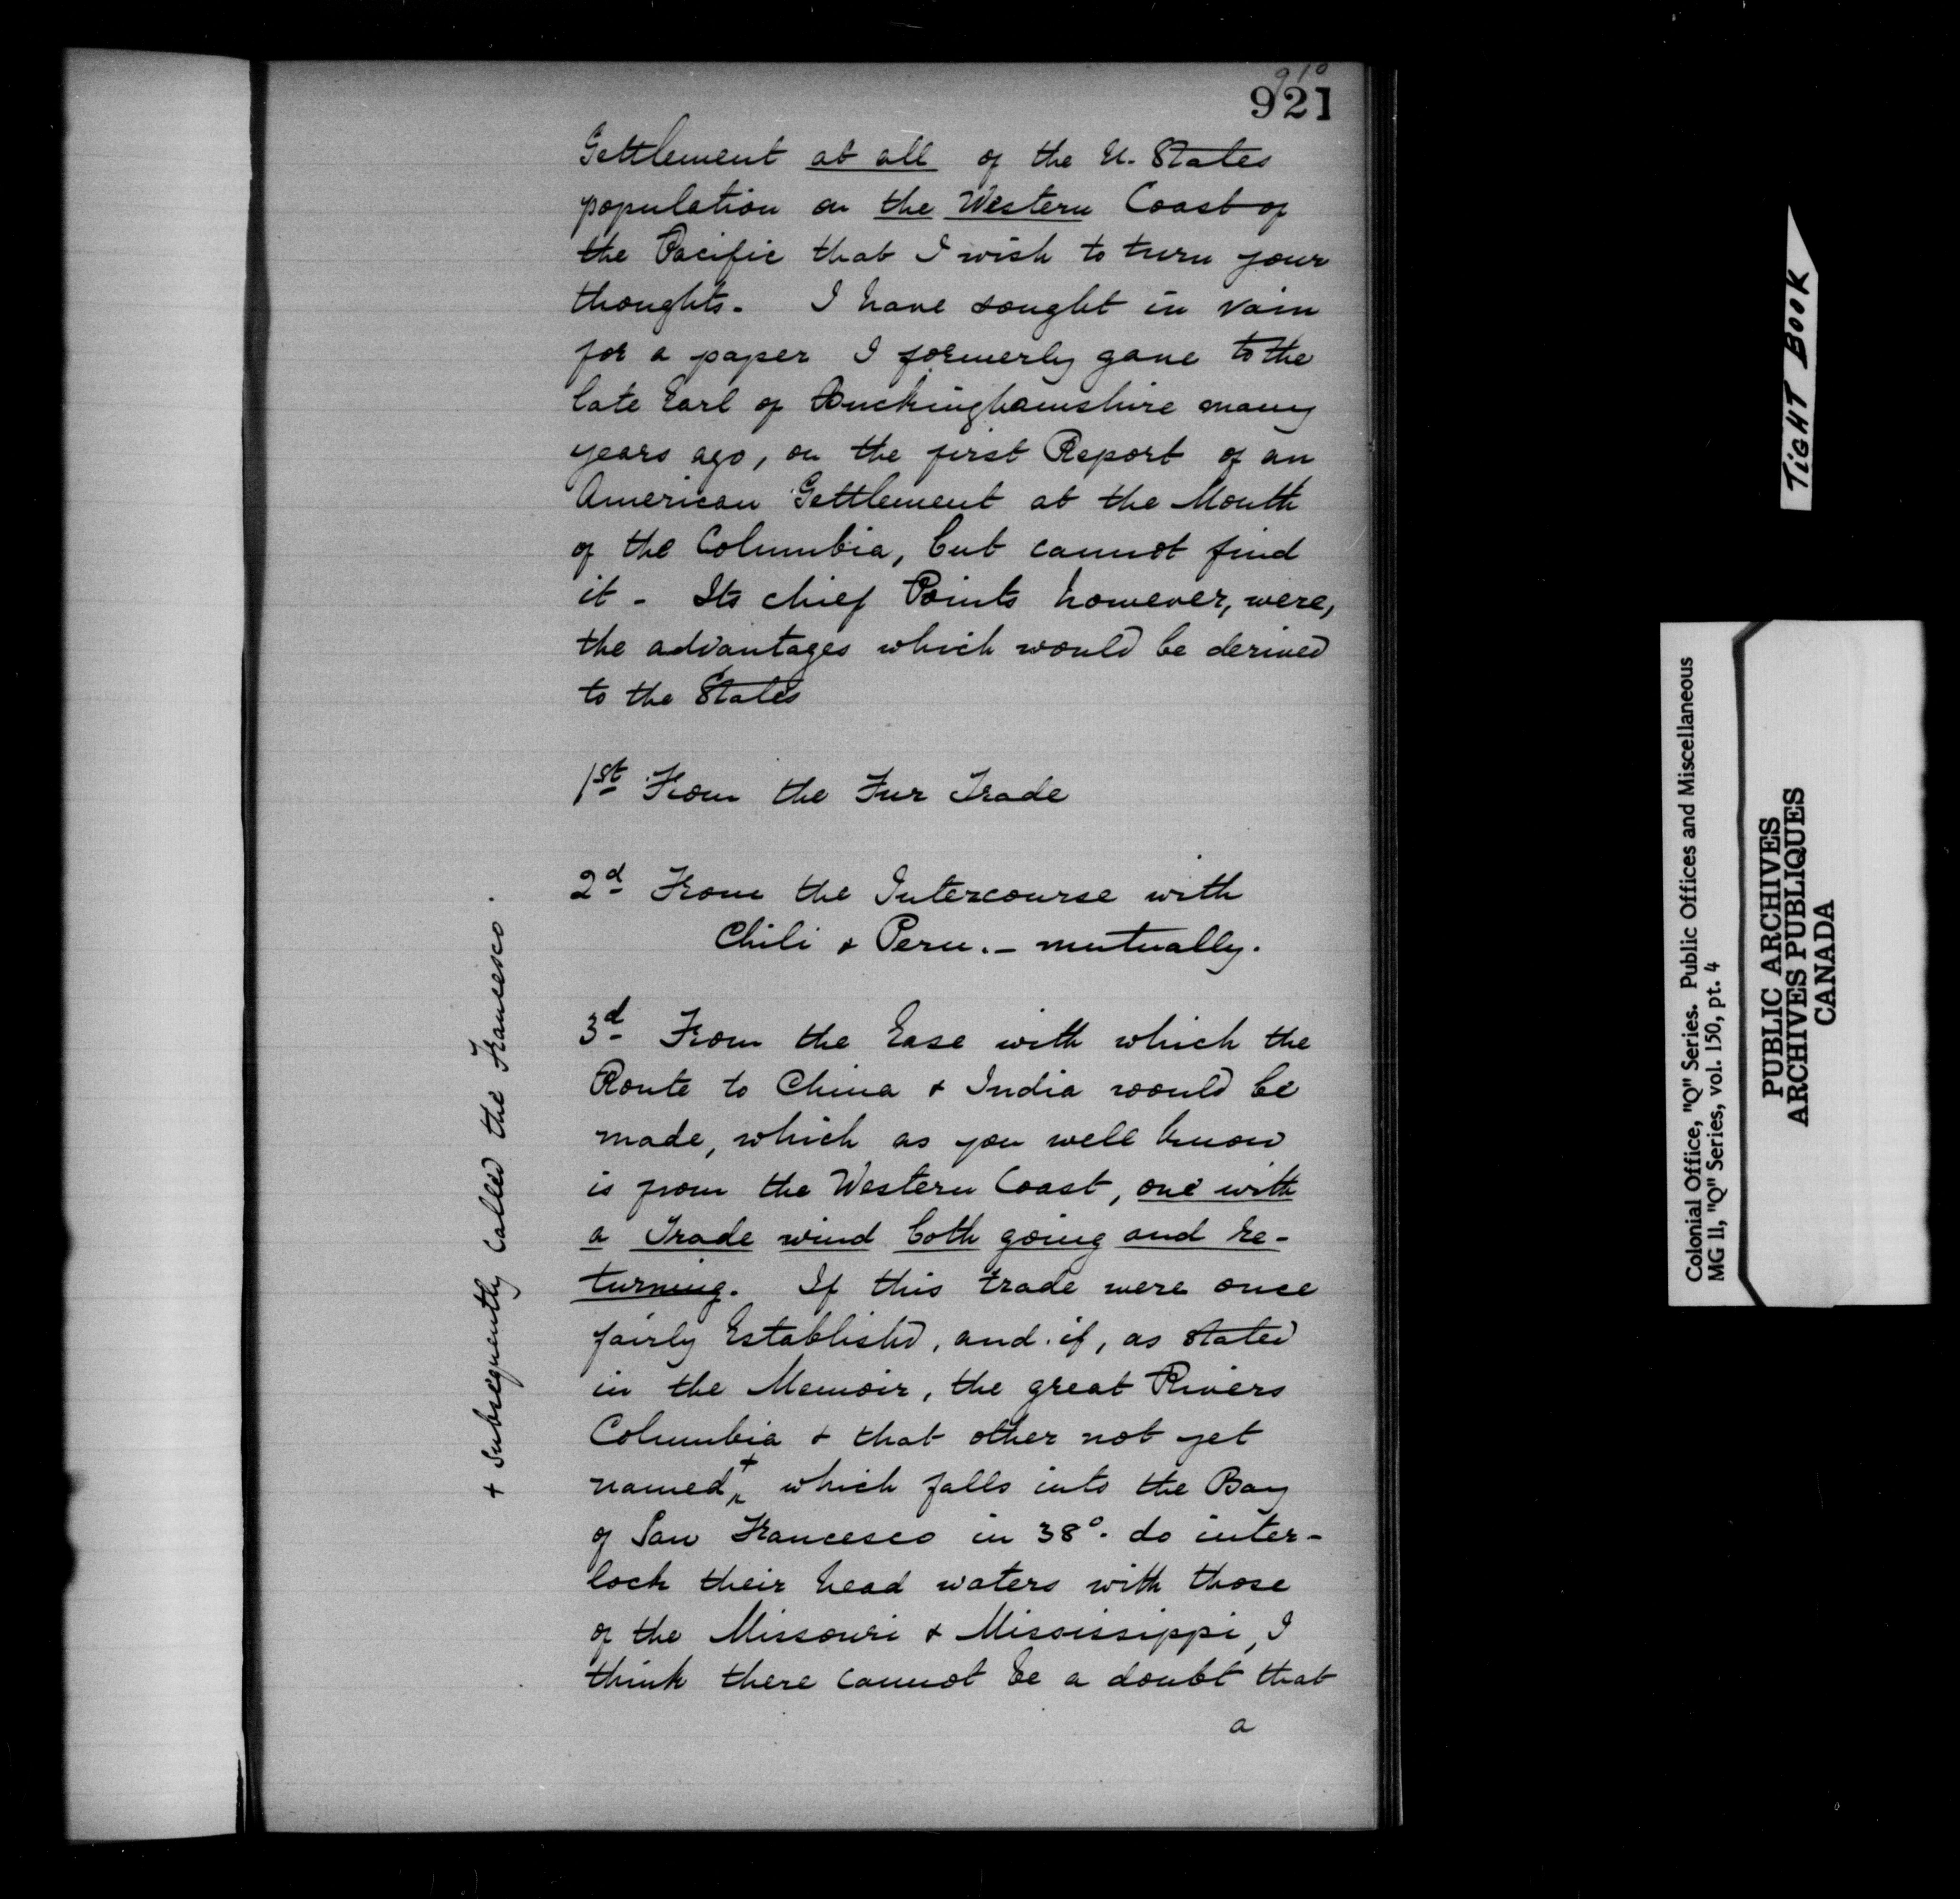 910
921
Settlement at all of the U. States
population on the Western Coast of
the Pacific that I wish to turn your
thoughts. I have sought in vain
for a paper I formerly gave to the
late Earl of Buckinghamshire many
years ago, on the first Report of an
American Settlement at the Mouth
of the Columbia, but cannot find
it - Its chief Points however, were,
the advantages which would be derived
to the States
1st From the Fur Trade
2d From the Intercourse with
Chili & Peru. - mutually.
3d From the Ease with which the
Route to China & India would be
made, which as you well know
is from the Western Coast, one with
a Trade wind both going and re-
turning. If this trade were once
fairly Establishd, and if, as stated
in the Memoir, the great Rivers
Columbia & that other not yet
named + which falls into the Bay
of San Francesco in 38°. do inter-
lock their head waters with those
of the Missouri & Mississippi, I
think there cannot be a doubt that
a
+ Subsequently called the Francesco.
TIGHT BOOK
Colonial Office, "Q" Series. Public Offices and Miscellaneous
MG 11, "Q" Series, vol. 150, pt. 4
PUBLIC ARCHIVES
ARCHIVES PUBLIQUES
CANADA